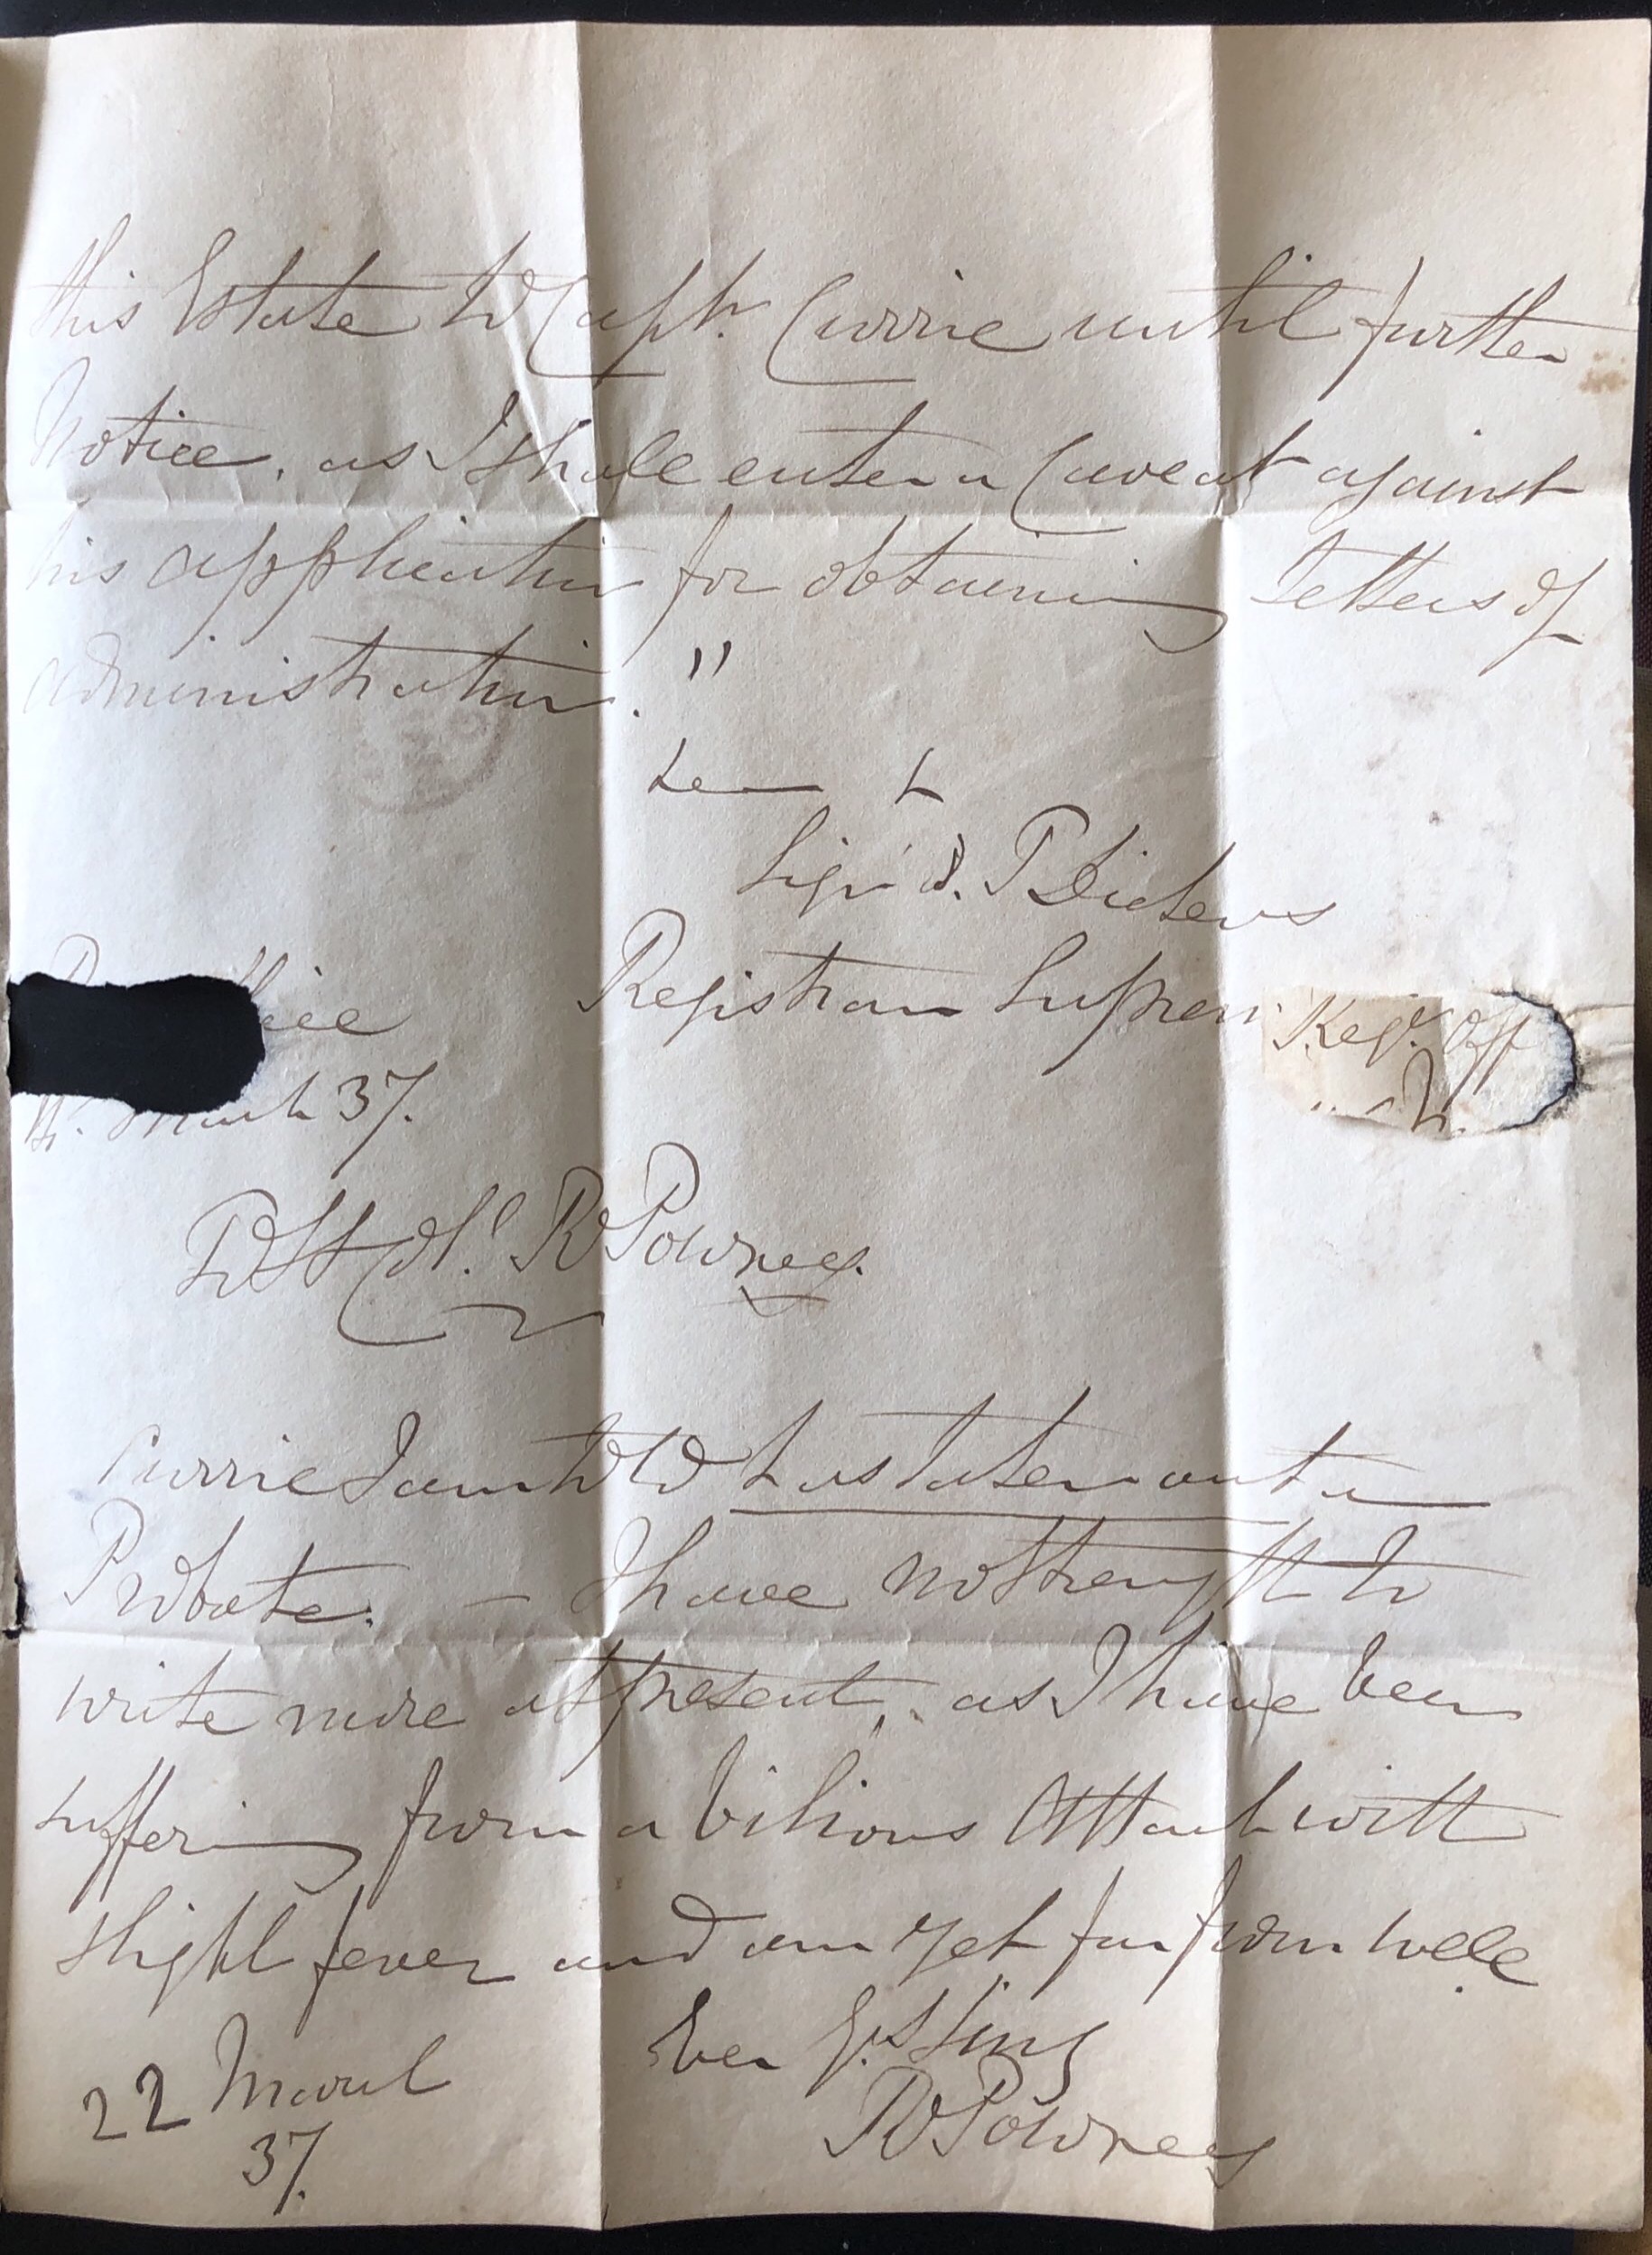 this Estate to Capt. Currie until further
Notice, as I shall enter a Caveat against
his application for obtaining Letters of
administration."
Sign'd. T Dickens
Registrar Suprem
Reg. Off
March 37.
R Powney.
Currie I am told has taken out a
Probate. — I have no strength to
write more at present, as I have been
suffering from a bilious Attack with
slight fever and am yet far from well
Ever Yrs Sin
22 March R Powney
37.